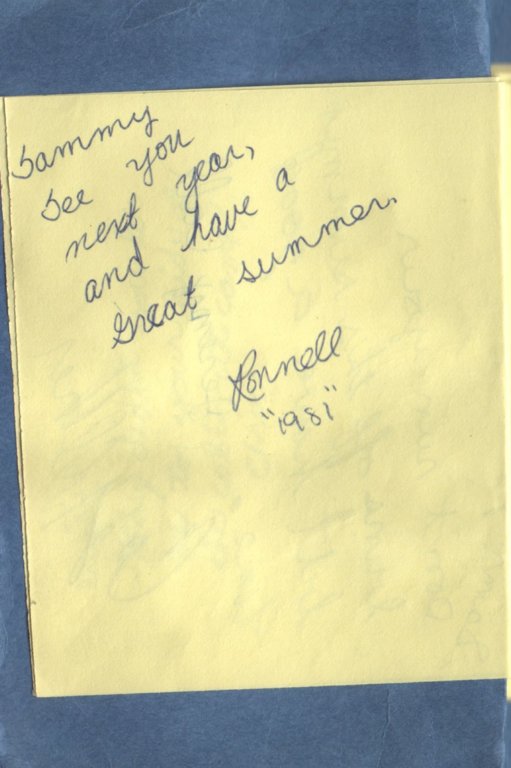 Sammy
See you
next year,
and have a
great summer.
Ronnell
"1981"